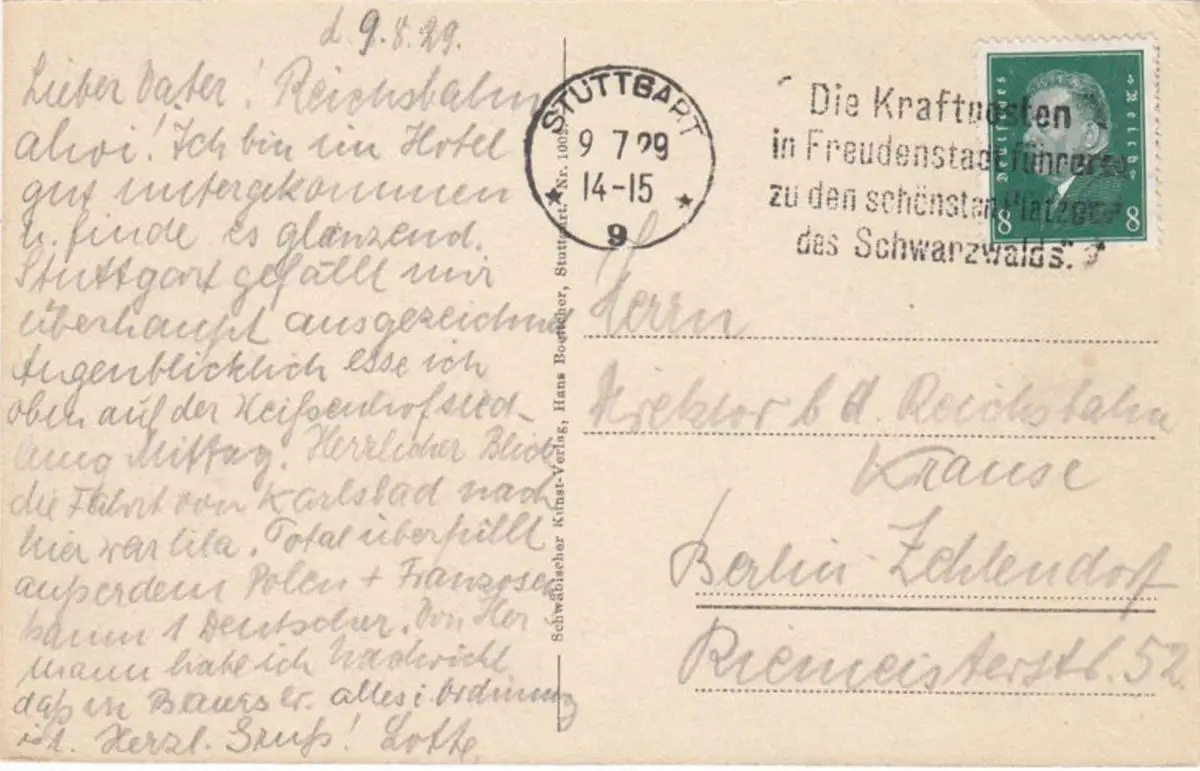 d. 9.8.29.
Lieber Vater! Reichsbahn
ahoi! Ich bin im Hotel
gut untergekommen
u. finde es glänzend.
Stuttgart gefällt mir
überhaupt ausgezeichnet
Augenblicklich esse ich
oben auf der Weißenhofsied-
lung Mittag. Herrlicher Blick
die Fahrt von Karlsbad nach
hier war lila. Total überfüllt
außerdem Polen + Franzosen
kaum 1 Deutscher. Von Her-
mann habe ich Nachricht
daß in alles i. Ordnung
ist. Herzl. Gruß! Lotte.
Schwäbischer Kunst-Verlag, Hans Boettcher, Stuttgart. Nr. 1002.
STUTTGART
9 7 29
14-15
9
"Die Kraftposten
in Freudenstadt führen
zu den schönsten Plätzen
des Schwarzwalds."
Deutsches Reich
8 8
Herrn
Direktor b d. Reichsbahn
Krause
Berlin-Zehlendorf
Riemeisterstr. 52